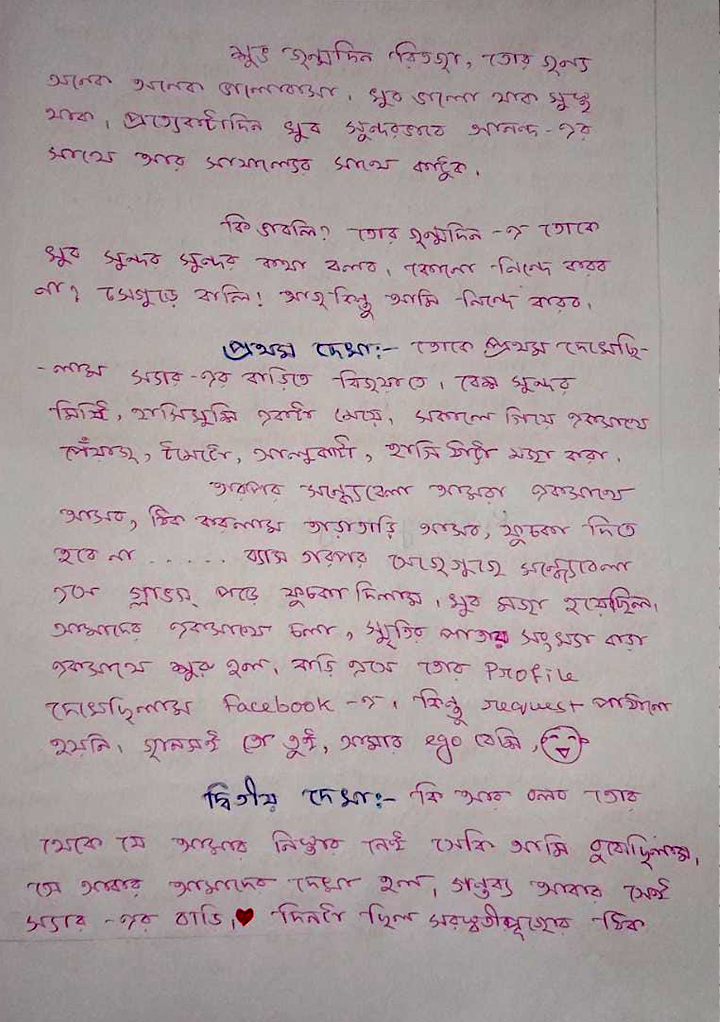 শুভ জন্মদিন রিতজা, তোর জন্য
অনেক অনেক ভালোবাসা। খুব ভালো থাক সুস্থ
থাক। প্রত্যেকটাদিন খুব সুন্দরভাবে আনন্দ-এর
সাথে আর সাফল্যের সাথে কাটুক।
কি ভাবলি? তোর জন্মদিন-এ তোকে
খুব সুন্দর সুন্দর কথা বলব, কোনো নিন্দে করব
না? সেগুড়ে বালি! আজ কিন্তু আমি নিন্দে করব।
প্রথম দেখা:- তোকে প্রথম দেখেছি-
-লাম স্যার-এর বাড়িতে বিজয়াতে। বেশ সুন্দর
মিষ্টি, হাসিখুশি একটা মেয়ে, সকালে গিয়ে একসাথে
পেঁয়াজ, টমেটো, আলুকাটা, হাসি ঠাট্টা মজা করা।
তারপর সন্ধ্যেবেলা আমরা একসাথে
আসব, ঠিক করলাম তাড়াতাড়ি আসব, ফুচকা দিতে
হবে না ..... ব্যাস তারপর সেজেগুজে সন্ধ্যেবেলা
এসে গ্লাভস্ পড়ে ফুচকা দিলাম। খুব মজা হয়েছিল।
আমাদের একসাথে চলা, স্মৃতির পাতায় সংখ্যা বাড়া
একসাথে শুরু হল। বাড়ি এসে তোর Profile
দেখেছিলাম facebook-এ। কিন্তু request পাঠানো
হয়নি। জানসই তো তুই, আমার ego বেশি,
দ্বিতীয় দেখা:- কি আর বলব তোর
থেকে যে আমার নিস্তার নেই সেকি আমি বুঝেছিলাম,
সে আবার আমাদের দেখা হল, গন্তব্য আবার সেই
স্যার-এর বাড়ি, দিনটা ছিল সরস্বতীপূজোর ঠিক